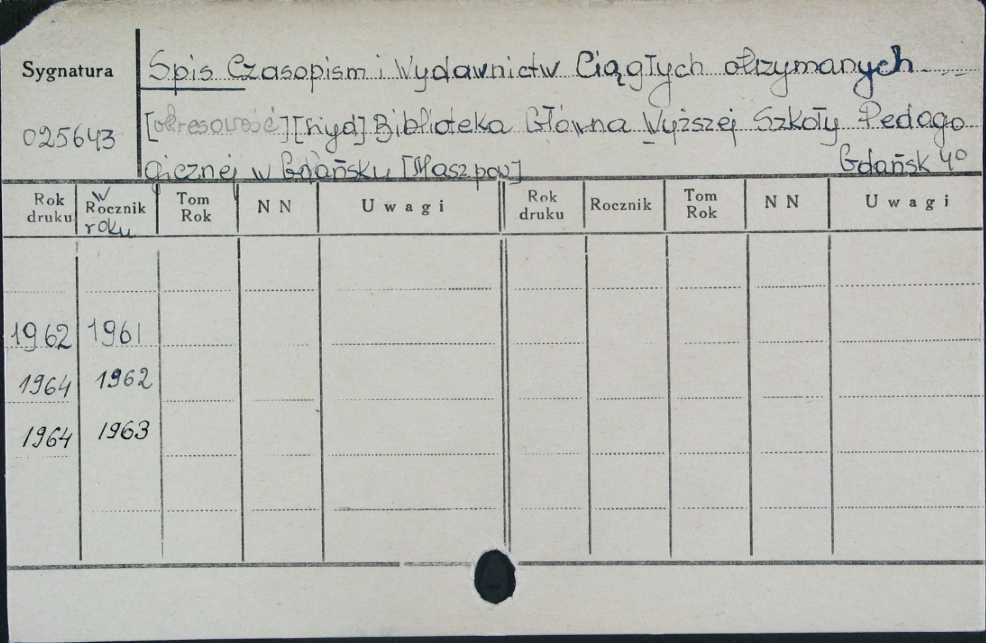 Sygnatura
025643
Spis Czasopism i Wydawnictw Ciągłych otrzymanych
[okresowość] [Wyd] Biblioteka Główna Wyższej Szkoły Pedago
gicznej w Gdańsku [Maszpow]
Gdańsk 4º
Rok druku w Rocznik roku Tom Rok NN Uwagi Rok druku Rocznik Tom Rok NN Uwagi
1962 1961
1964 1962
1964 1963